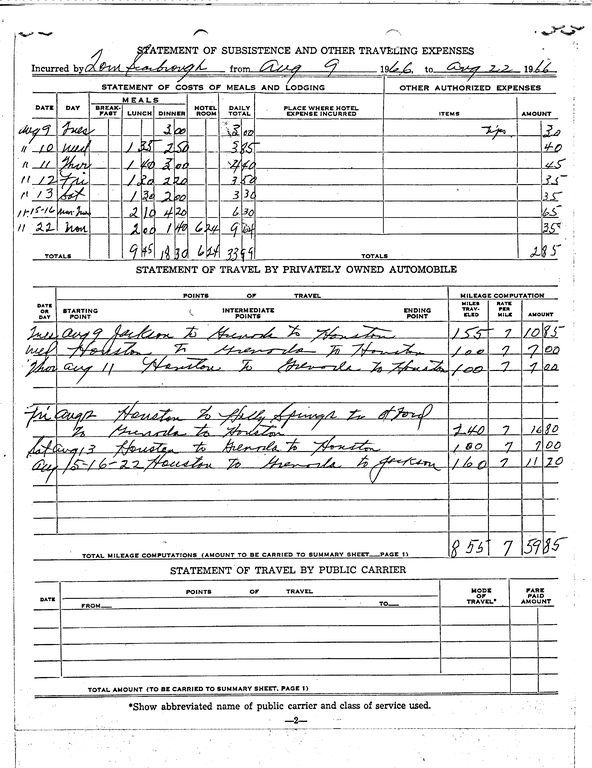 STATEMENT OF SUBSISTENCE AND OTHER TRAVELING EXPENSES
Incurred by Tom Scarbrough from Aug 9 1966 to Aug 22 1966
STATEMENT OF COSTS OF MEALS AND LODGING OTHER AUTHORIZED EXPENSES
DATE DAY MEALS BREAK-FAST LUNCH DINNER HOTEL ROOM DAILY TOTAL PLACE WHERE HOTEL EXPENSE INCURRED ITEMS AMOUNT
Aug 9 Tues 3 00 3 00 Tips 30
" 10 Wed 1 35 2 50 3 85 40
" 11 Thur 1 40 3 00 4 40 45
" 12 Fri 1 30 2 20 3 50 35
" 13 Sat 1 30 2 00 3 30 35
" 15-16 Mon Tues 2 10 4 20 6 30 65
" 22 Mon 2 00 1 40 6 24 9 64 35
TOTALS 9 45 18 30 6 24 33 99 TOTALS 2 85
STATEMENT OF TRAVEL BY PRIVATELY OWNED AUTOMOBILE
DATE OR DAY POINTS OF TRAVEL STARTING POINT INTERMEDIATE POINTS ENDING POINT MILEAGE COMPUTATION MILES TRAV-ELED RATE PER MILE AMOUNT
Tues Aug 9 Jackson to Grenada to Houston 155 7 10 85
Wed Houston to Grenada to Houston 100 7 7 00
Thur Aug 11 Houston to Grenada to Houston 100 7 7 00
Fri Aug 12 Houston to Holly Springs to Oxford
to Grenada to Houston 240 7 16 80
Sat Aug 13 Houston to Grenada to Houston 100 7 7 00
Aug 15-16-22 Houston to Grenada to Jackson 160 7 11 20
TOTAL MILEAGE COMPUTATIONS (AMOUNT TO BE CARRIED TO SUMMARY SHEET—PAGE 1) 855 7 59 85
STATEMENT OF TRAVEL BY PUBLIC CARRIER
DATE POINTS OF TRAVEL FROM— TO— MODE OF TRAVEL* FARE PAID AMOUNT
TOTAL AMOUNT (TO BE CARRIED TO SUMMARY SHEET, PAGE 1)
*Show abbreviated name of public carrier and class of service used.
—2—